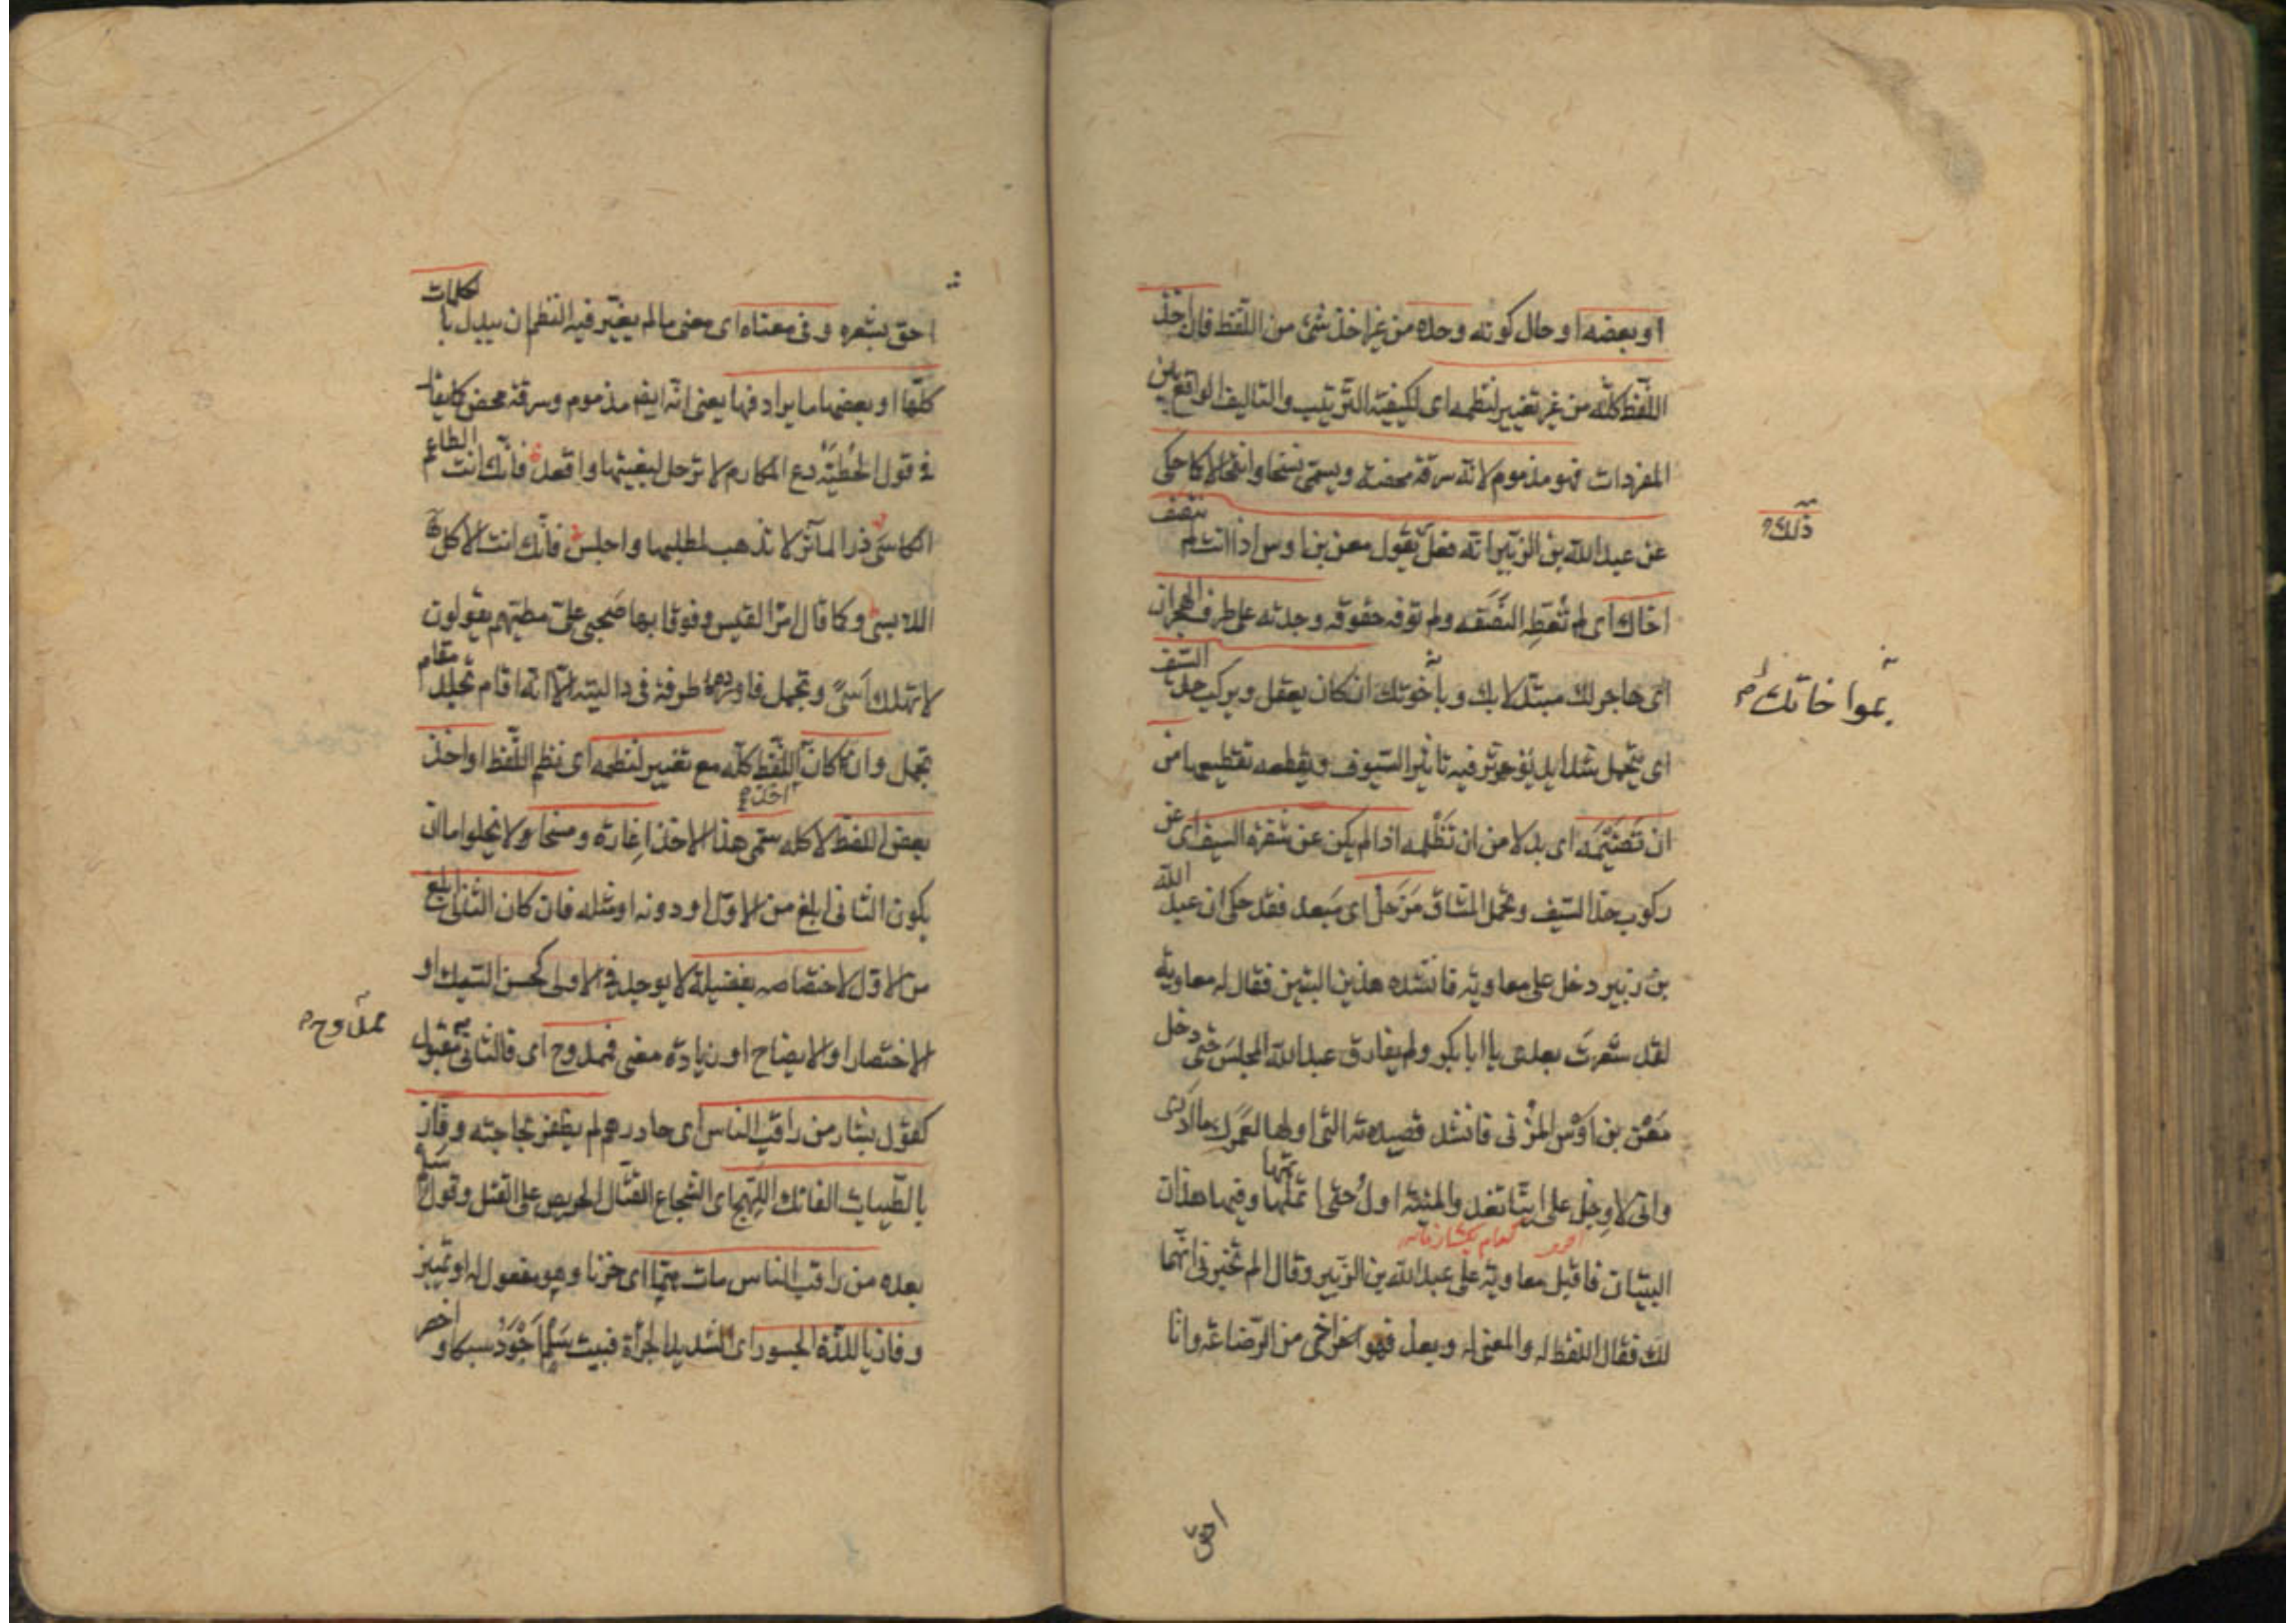 او بعضه او حال كونه وحده من غير اخذ شئ من اللفظ فان اخذ
اللفظ كله من غير تغيير لنظمه اى لكيفية الترتيب والتاليف الواقع بين
المفردات فهو مذموم لانه سرقة محضة ويسمى نسخا وانتحالا كما حكى
ذلك
عن عبد الله بن الزبير انه فعل بقول معن بن اوس اذا انت لم تنصف
اخاك اى لم تعط النصفة ولم توفه حقوقه وجدته على طرف الهجران
اى هاجرا لك مبتذلا بك وباخوتك ان كان يعقل ويركب حد السيف
اى يتحمل شدايد يؤثر فيه تاثير السيوف ويقطعه تقطيعها من
ان تضيمه اى بدلا من ان تظلمه اذا لم يكن عن شفرة السيف اى عن
ركوب حد السيف وتحمل المشاق مزحل اى مبعد فقد حكى ان عبد الله
بن زبير دخل على معاوية فانشده هذين البيتين فقال له معاوية
لقد شعرت بعدى يا ابا بكر ولم يفارق عبد الله المجلس حتى دخل
معن بن اوس المزنى فانشد قصيدته التى اولها لعمرك ما ادرى
وانى لاوجل على اينا تغدو المنية اول حتى اتمها وفيها هذان
البيتان فاقبل معاوية على عبد الله بن الزبير وقال الم تخبرنى انهما
لك فقال اللفظ له والمعنى له وبعد فهو اخى من الرضاعة وانا
احق
احق بشعره وفى معناه اى معنى ما لم يغير فيه النظم ان يبدل بالكلمات
كلها او بعضها ما يرادفها يعنى انه ايضا مذموم وسرقة محضة كما يقال
فى قول الحطيئة دع المكارم لا ترحل لبغيتها واقعد فانك انت الطاعم
الكاسى ذر المآثر لا تذهب لمطلبها واجلس فانك انت الآكل
اللابس وكما قال امرؤ القيس وقوفا بها صحبى على مطيهم يقولون
لا تهلك اسى وتجمل فاورده طرفة فى داليته الا انه اقام تجلد مقام
تجمل وان كان اللفظ كله مع تغيير لنظمه اى نظم اللفظ او اخذ
بعض اللفظ لا كله سمى هذا الاخذ اغارة ومسخا ولا يخلوا ما ان
يكون الثانى ابلغ من الاول او دونه او مثله فان كان الثانى ابلغ
من الاول لاختصاصه بفضيلة لا يوجد فى الاولى كحسن السبك او
الاختصار او الايضاح او زيادة معنى فممدوح اى فالثانى مقبول
ممدوح
كقول بشار من راقب الناس اى حاذرهم لم يظفر بحاجته وفاز
بالطيبات الفاتك اللهج اى الشجاع القتال الحريص على القتل وقول سلم
بعده من راقب الناس مات هما اى حزنا وهو مفعول له او تمييز
وفاز باللذة الجسور اى الشديد الجرأة فبيت سلم اجود سبكا واخصر